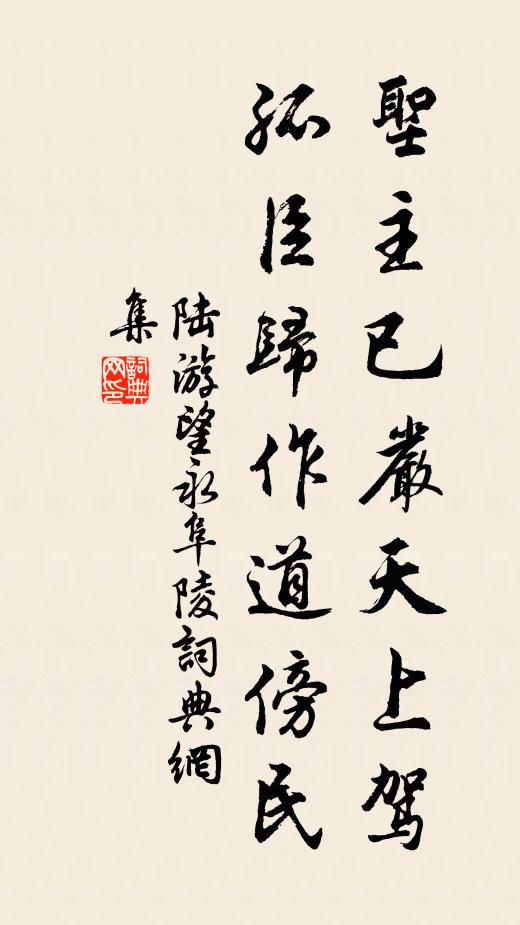 聖主已嚴天上駕
孤臣歸作道傍民
陸游望永阜陵詞典網
集
詞典
网印